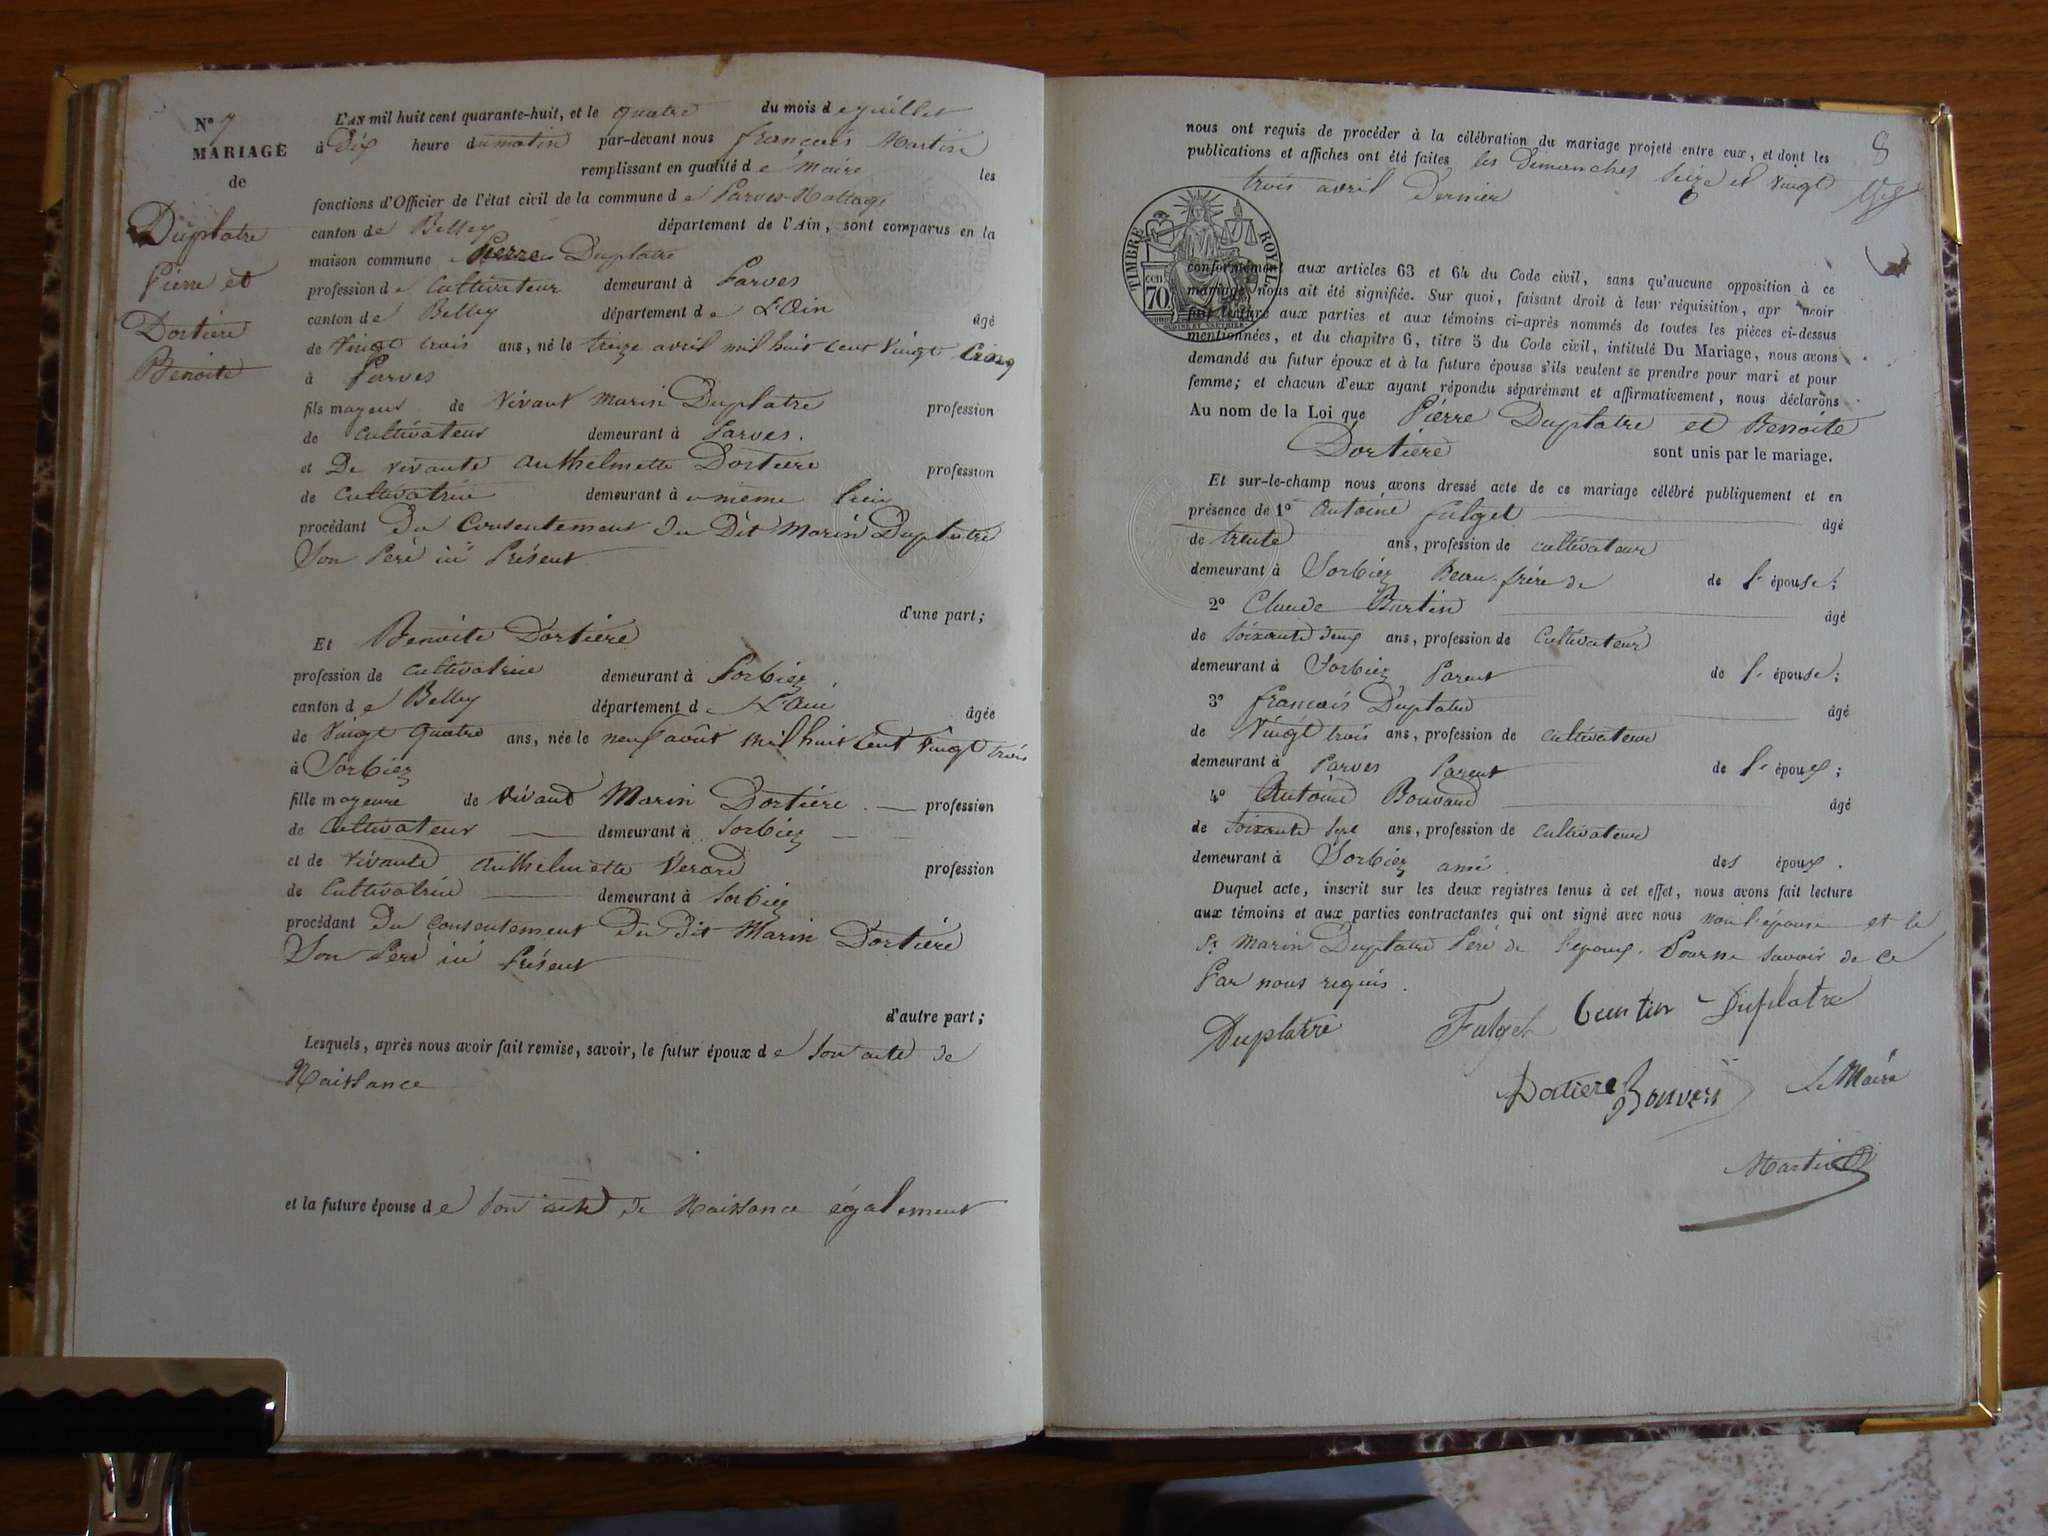 N° 7
MARIAGE
de
Duplatre
Pierre et
Dortière
Benoite
L'AN mil huit cent quarante-huit, et le quatre du mois de juillet
à Dix heure du matin par-devant nous françois Martin
remplissant en qualité de Maire les
fonctions d'Officier de l'état civil de la commune de Parves-Nattage
canton de Belley département de l'Ain, sont comparus en la
maison commune Pierre Duplatre
profession de Cultivateur demeurant à Parves
canton de Belley département de L'Ain âgé
de Vingt trois ans, né le treize avril mil huit cent Vingt Cinq
à Parves
fils mayeur de Vivant Marin Duplatre profession
de cultivateur demeurant à Parves.
et De vivante Anthelmette Dortière profession
de Cultivatrice demeurant à même lieu
procédant Du Consentement du Dit Marin Duplatre
Son Père ici Présent
d'une part;
Et Benoite Dortière
profession de cultivatrice demeurant à Sorbiez
canton de Belley département de L'Ain âgée
de Vingt quatre ans, née le neuf août mil huit Cent Vingt trois
à Sorbiez
fille mayeure de Vivant Marin Dortière profession
de Cultivateur demeurant à Sorbiez
et de Vivante Anthelmette Verard profession
de Cultivatrice demeurant à Sorbiez
procédant Du consentement Du dit Marin Dortière
Son Père ici Présent
d'autre part;
Lesquels, après nous avoir fait remise, savoir, le futur époux de Son acte de
Naissance
et la future épouse de Son acte de Naissance également
8
nous ont requis de procéder à la célébration du mariage projeté entre eux, et dont les
publications et affiches ont été faites les Dimanches Seize et Vingt
trois avril Dernier
TIMBRE ROYAL
70
conformément aux articles 63 et 64 du Code civil, sans qu'aucune opposition à ce
mariage nous ait été signifiée. Sur quoi, faisant droit à leur réquisition, apr avoir
fait lecture aux parties et aux témoins ci-après nommés de toutes les pièces ci-dessus
mentionnées, et du chapitre 6, titre 5 du Code civil, intitulé Du Mariage, nous avons
demandé au futur époux et à la future épouse s'ils veulent se prendre pour mari et pour
femme; et chacun d'eux ayant répondu séparément et affirmativement, nous déclarons
Au nom de la Loi que Pierre Duplatre et Benoite
Dortière sont unis par le mariage.
Et sur-le-champ nous avons dressé acte de ce mariage célébré publiquement et en
présence de 1° Antoine fulget âgé
de trente ans, profession de cultivateur
demeurant à Sorbiez Beau-frère de de l'épouse;
2° Claude Burtin âgé
de Soixante deux ans, profession de Cultivateur
demeurant à Sorbiez Parent de l'épouse;
3° françois Duplatre âgé
de Vingt trois ans, profession de cultivateur
demeurant à Parves Parent de l'époux;
4° Antoine Bouvard âgé
de Soixante Sept ans, profession de cultivateur
demeurant à Sorbiez ami des époux.
Duquel acte, inscrit sur les deux registres tenus à cet effet, nous avons fait lecture
aux témoins et aux parties contractantes qui ont signé avec nous non l'épouse et le
Sr Marin Duplatre Père de l'époux. Pour ne savoir de ce
Par nous requis.
Duplatre Fulget Burtin Duplatre
Dortiere Le Maire
Martin